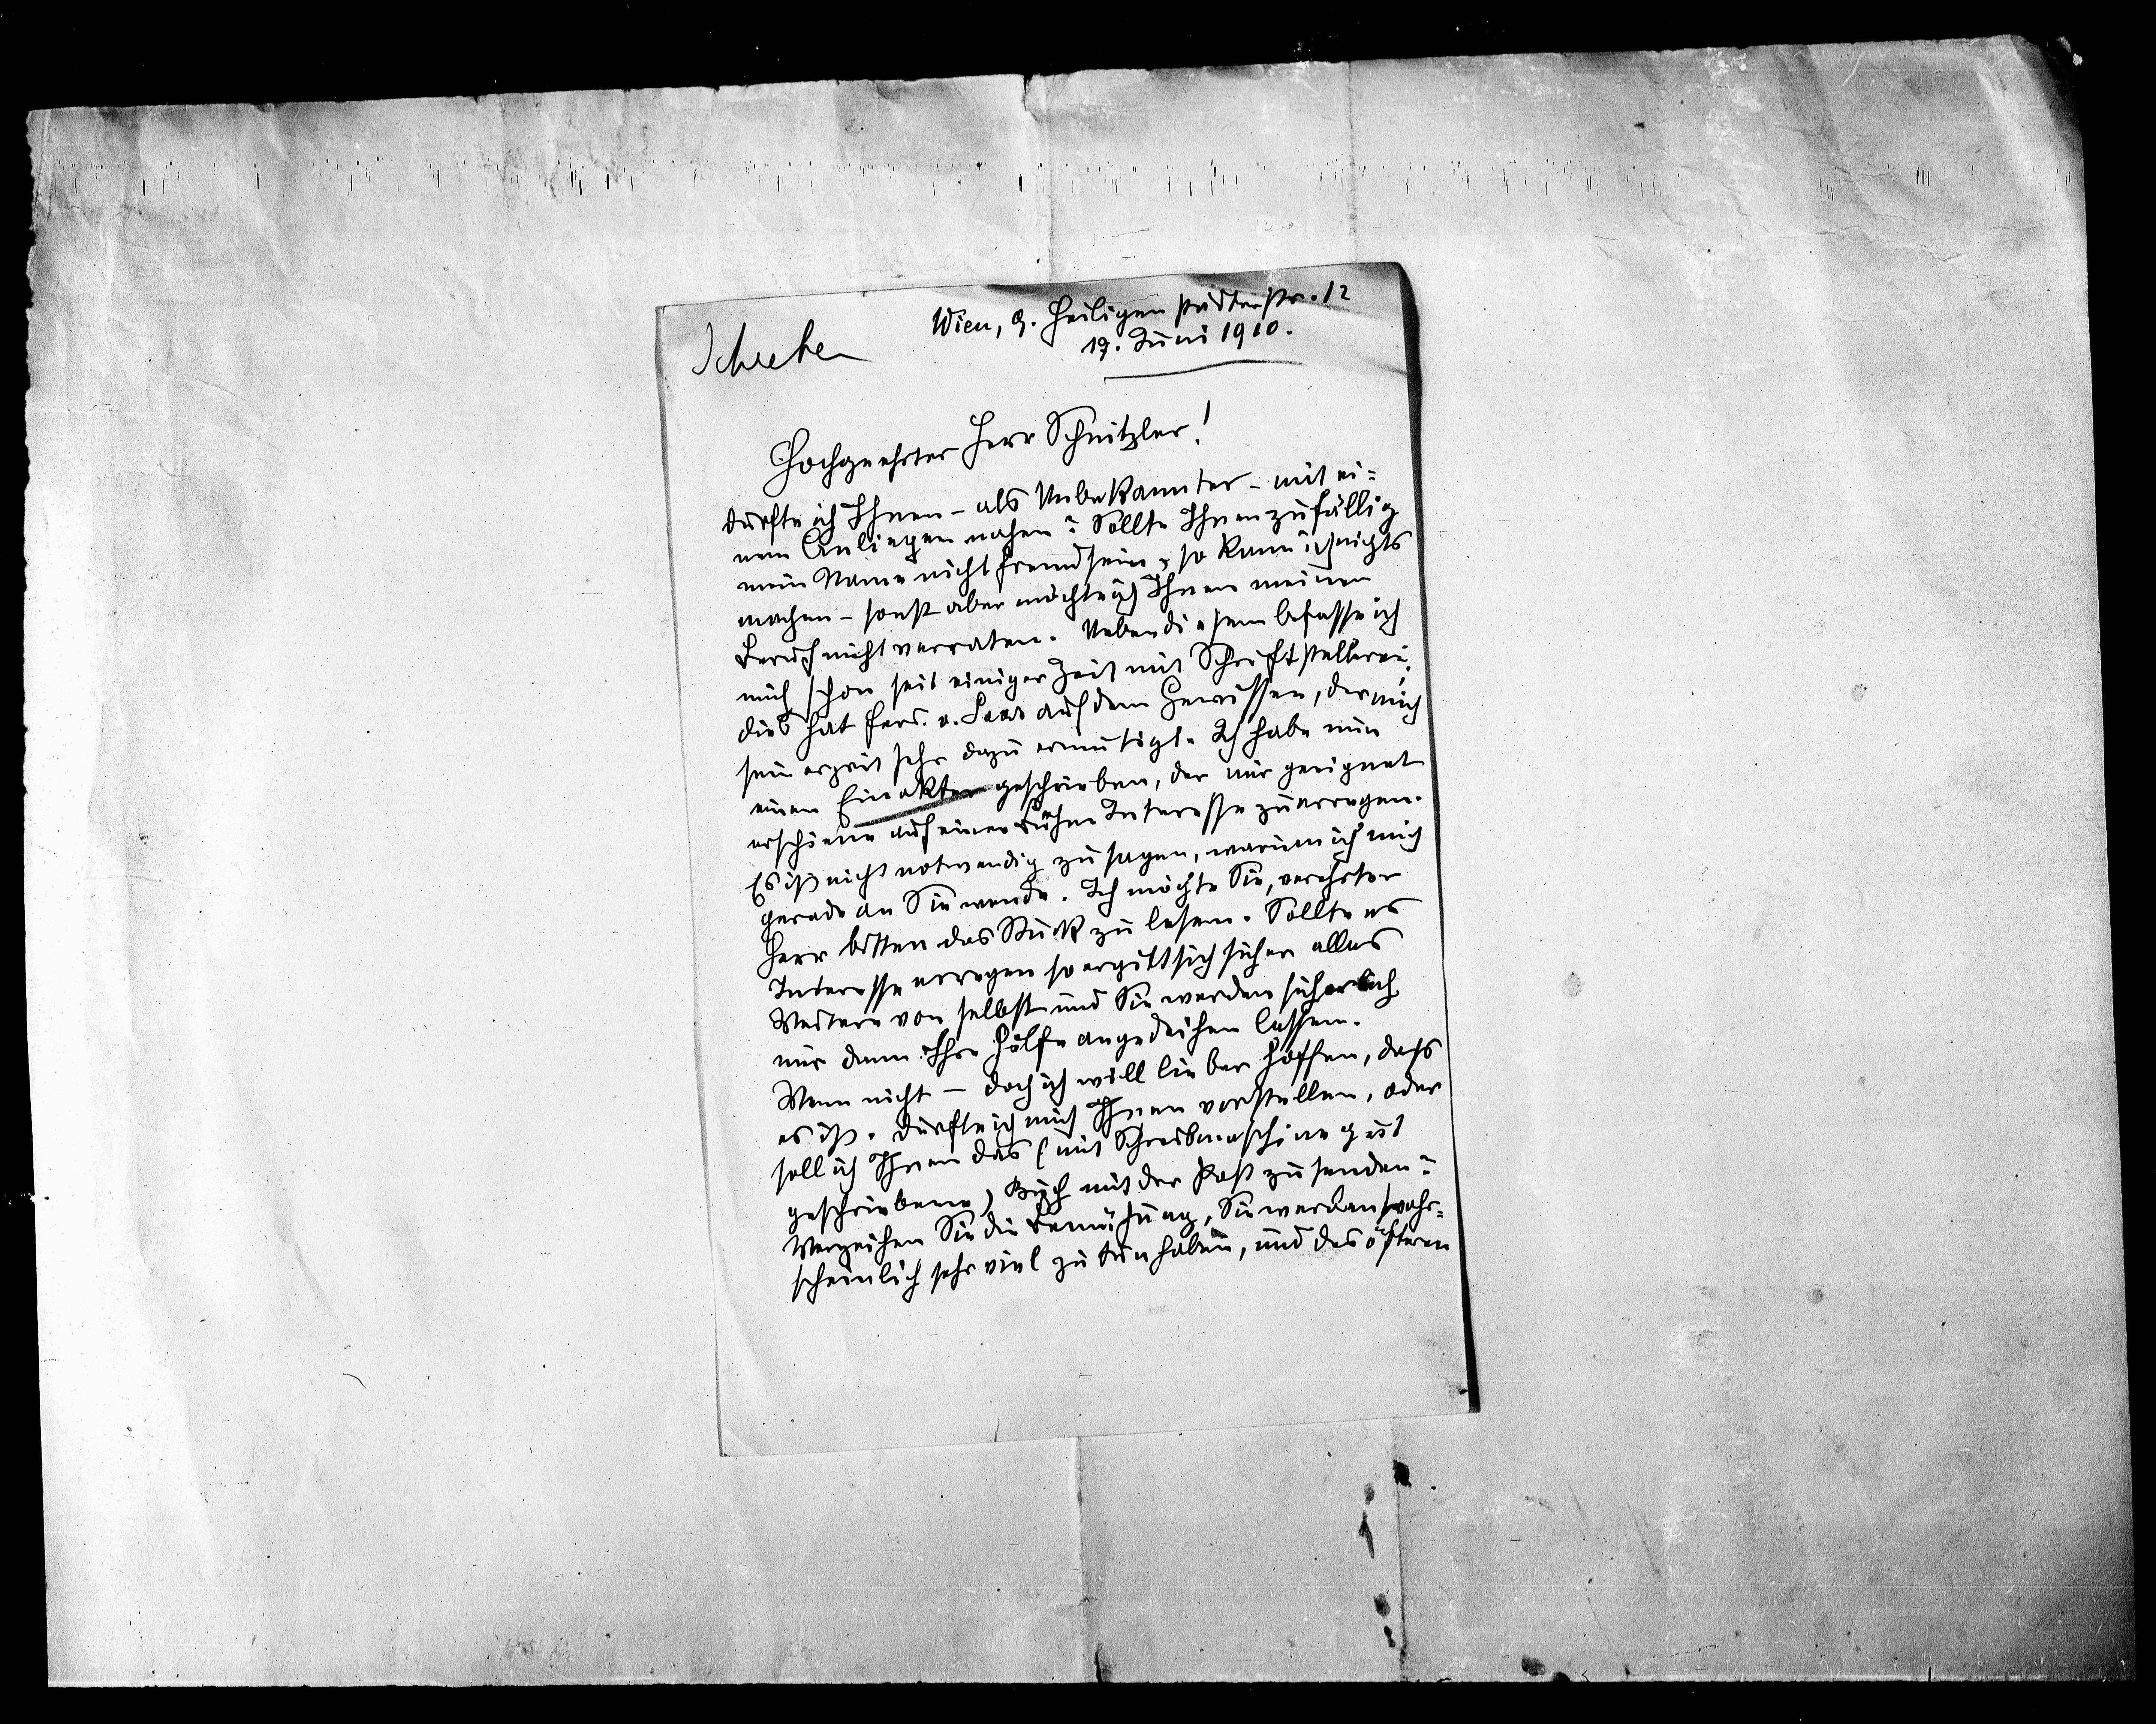 Wien, 9. Heiligenstädterstr. 12
19. Juni 1910.
Hochgeehrter Herr Schnitzler!
dürfte ich Ihnen – als Unbekannter – mit ei=
nem Anliegen nahen? Sollte Ihnen zufällig
mein Name nicht fremd sein, so kann ich nichts
machen – sonst aber möchte ich Ihnen meinen
Beruf nicht verraten. Neben diesem befasse ich
mich schon seit einiger Zeit mit Schriftstellerei;
dies hat Ferd. v. Saar auf dem Gewissen, der mich
seinerzeit sehr dazu ermutigt. Ich habe nun
einen Einakter geschrieben, der mir geeignet
erschiene auf einer Bühne Interesse zu erregen.
Es ist nicht notwendig zu sagen, warum ich mich
gerade an Sie wende. Ich möchte Sie, verehrter
Herr bitten das Stück zu lesen. Sollte es
Interesse erregen so ergibt sich sicher alles
Weitere von selbst und Sie werden sicherlich
mir dann Ihre Hülfe angedeihen lassen.
Wenn nicht – doch ich will lieber hoffen, dass
es ist. Dürfte ich mich Ihnen vorstellen, oder
soll ich Ihnen das (mit Schreibmaschine gut
geschriebene) Buch mit der Post zusenden?
Verzeihen Sie die Bemühung, Sie werden wahr=
scheinlich sehr viel zu tun haben, und des öfteren